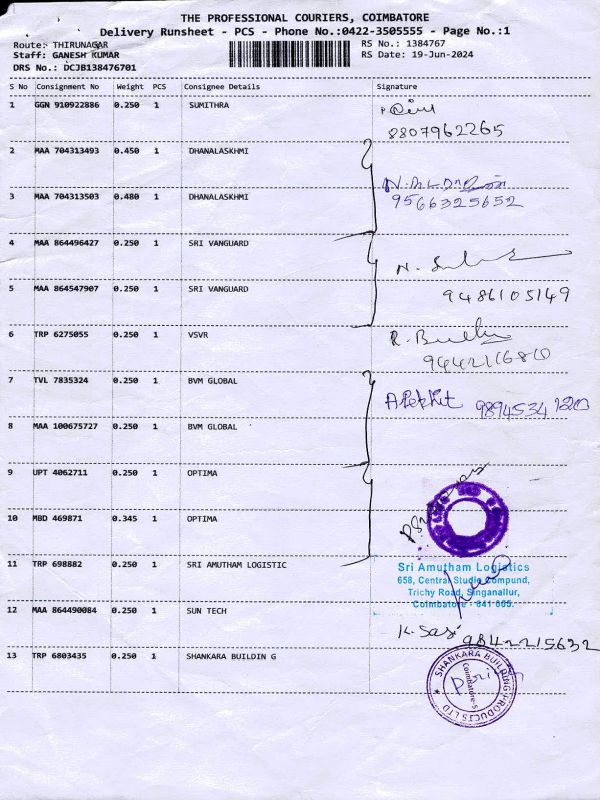 THE PROFESSIONAL COURIERS, COIMBATORE
Delivery Runsheet - PCS - Phone No.:0422-3505555 - Page No.:1
Route: THIRUNAGAR
RS No.: 1384767
Staff: GANESH KUMAR
RS Date: 19-Jun-2024
DRS No.: DCJB138476701
S No Consignment No Weight PCS Consignee Details Signature
1 GGN 910922886 0.250 1 SUMITHRA
8807962265
2 MAA 704313493 0.450 1 DHANALASKHMI
3 MAA 704313503 0.480 1 DHANALASKHMI
9566325652
4 MAA 864496427 0.250 1 SRI VANGUARD
5 MAA 864547907 0.250 1 SRI VANGUARD
9486105149
6 TRP 6275055 0.250 1 VSVR
9442116810
7 TVL 7835324 0.250 1 BVM GLOBAL
8 MAA 100675727 0.250 1 BVM GLOBAL
9 UPT 4062711 0.250 1 OPTIMA
10 MBD 469871 0.345 1 OPTIMA
11 TRP 698882 0.250 1 SRI AMUTHAM LOGISTIC
Sri Amutham Logistics
658, Central Studio Compund,
Trichy Road, Singanallur,
Coimbatore - 641 005.
12 MAA 864490084 0.250 1 SUN TECH
K. Sasi 9842215632
13 TRP 6803435 0.250 1 SHANKARA BUILDIN G
SHANKARA BUILDING PRODUCTS LTD
Coimbatore-5